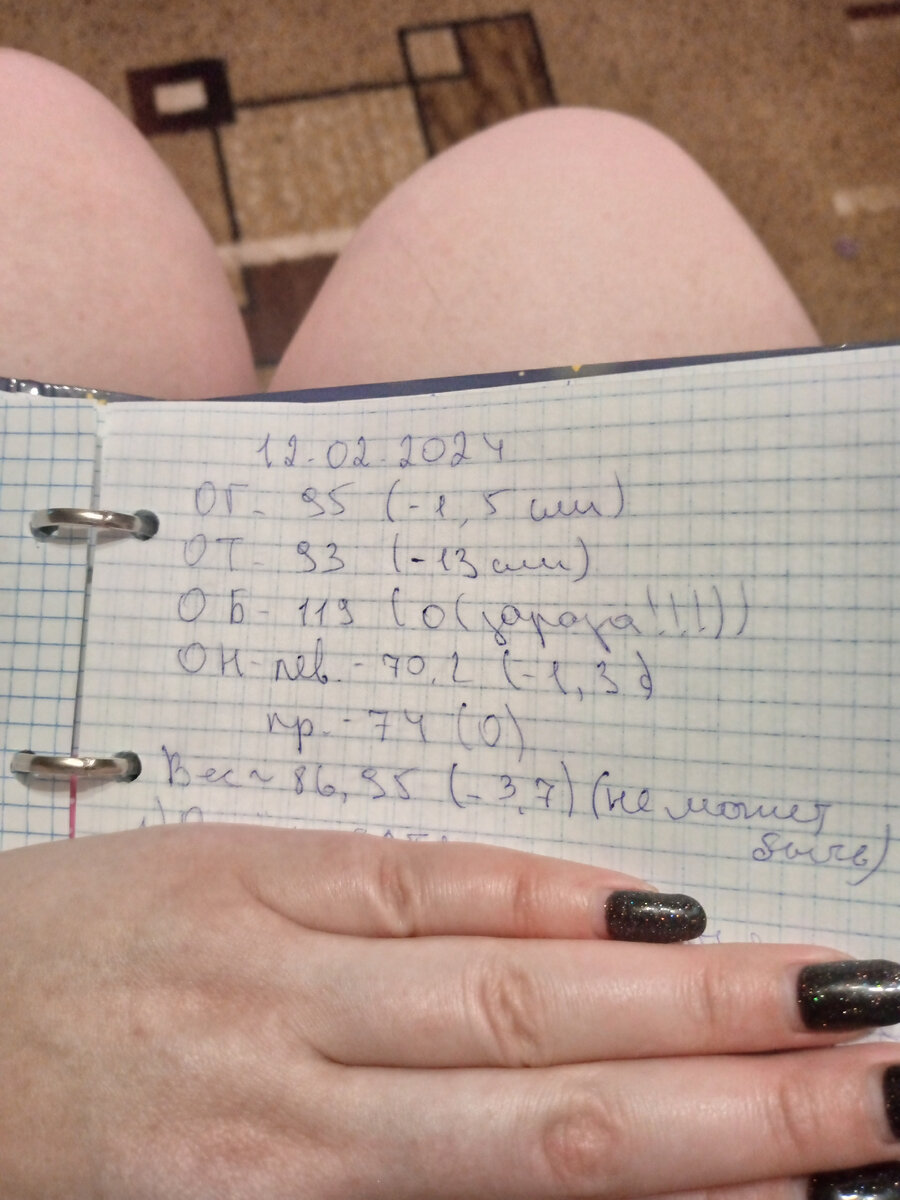 12.02.2024
ОГ- 95 (-1,5 см)
ОТ- 93 (-13 см)
ОБ- 119 (0 (зараза!!!))
ОН- лев.- 70,2 (-1,3)
пр.- 74 (0)
Вес ~ 86,95 (-3,7) (не может
быть)